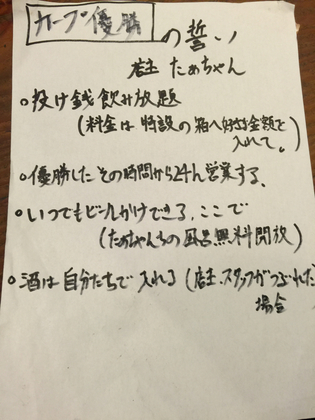 カープ優勝の誓い
店主 たあちゃん
○投げ銭飲み放題
(料金は特設の箱へ好きな金額を
入れて。)
○優勝したその時間から24h営業する。
○いつでもビールかけできる。ここで
(たあちゃんちの風呂無料開放)
○酒は自分たちで入れる(店主.スタッフがつぶれた
場合